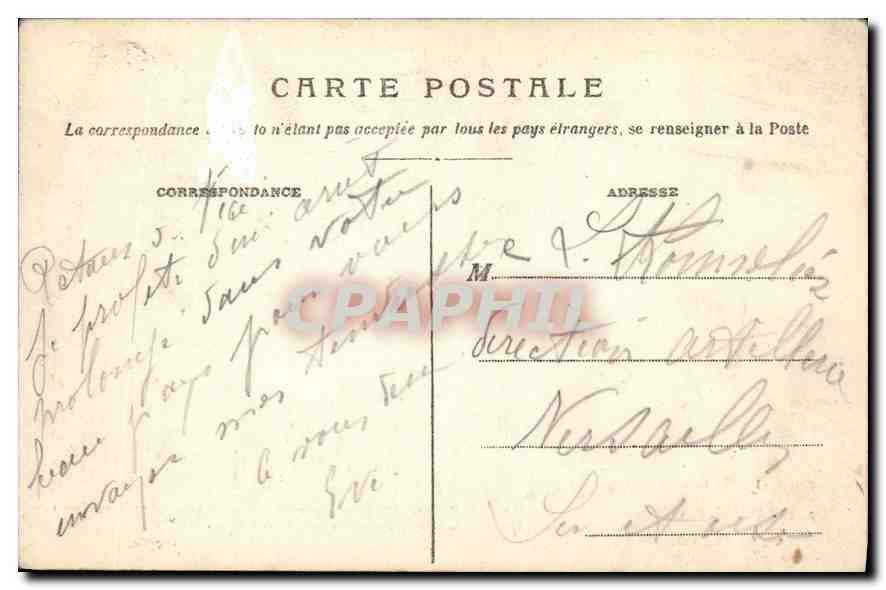 CARTE POSTALE
La correspondance to n'étant pas acceptée par tous les pays étrangers, se renseigner à la Poste
CORRESPONDANCE
ADRESSE
je profite d'un arrêt
prolongé dans votre
beau pays pour vous
envoyer mes
à vous deux
M
direction artillerie
Versailles
Sein et Oise
CPAPHIL